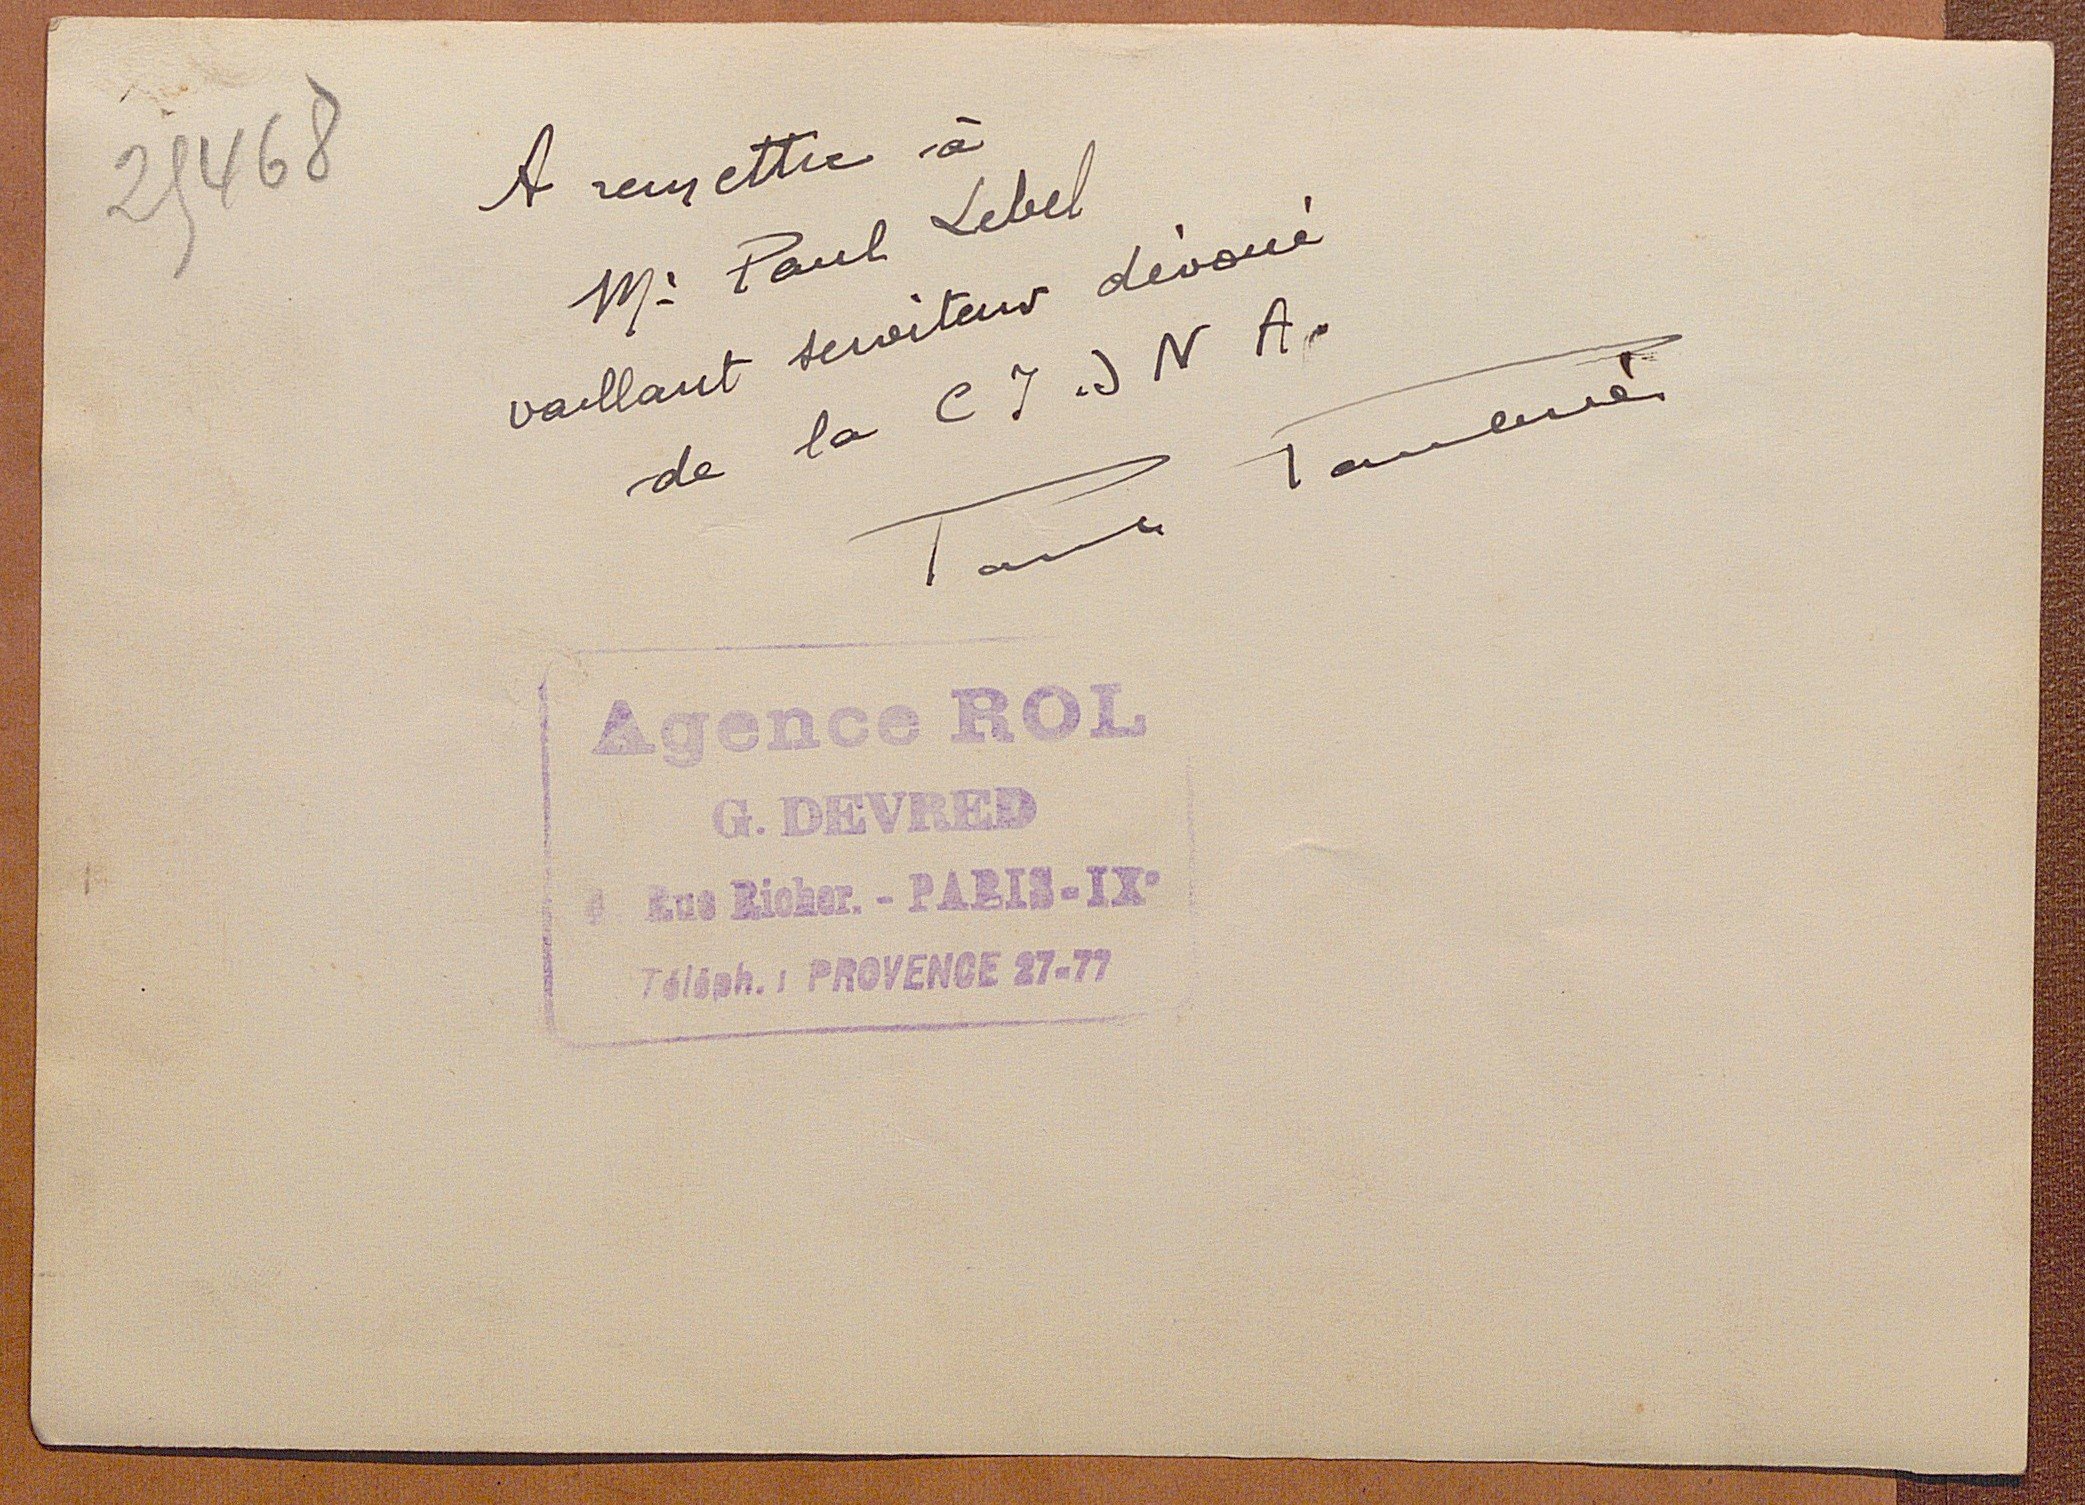 25468
A remettre à
Mr Paul Lebel
vaillant serviteur dévoué
de la C I D N A.
Agence ROL
G. DEVRED
Rue Richer. - PARIS-IXe
Téléph. : PROVENCE 27-77